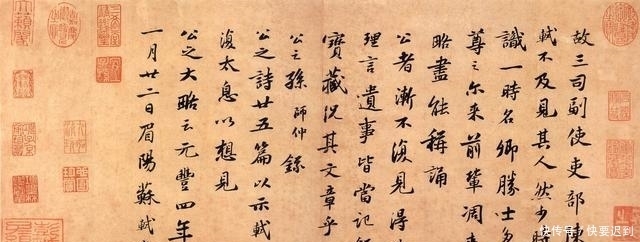 故三司副使吏部陳
軾不及見其人然少時
識一時名卿勝士多
尊之尔来前輩凋喪
略盡能稱誦
公者漸不復見得
理言遺事皆當記
寶藏況其文章乎
公之孫師仲録
公之詩廿五篇以示軾
復太息以想見
公之大略云元豐四年
一月廿二日眉陽蘇軾
快传号/快要迟到